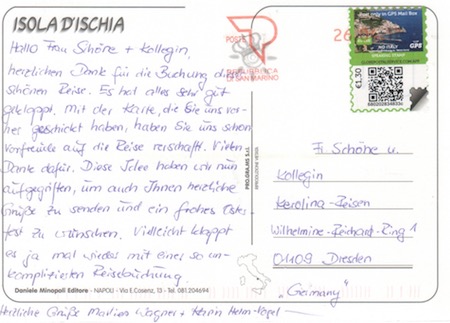 ISOLA D'ISCHIA
Hallo Frau Schöne + Kollegin,
herzlichen Dank für die Buchung dieser
schönen Reise. Es hat alles sehr gut
geklappt. Mit der Karte, die Sie uns vor-
her geschickt haben, haben Sie uns schon
Vorfreude auf die Reise verschafft. Vielen
Dank dafür. Diese Idee haben wir nun
aufgegriffen, um auch Ihnen herzliche
Grüße zu senden und ein frohes Oster-
fest zu wünschen. Vielleicht klappt
es ja mal wieder mit einer so un-
komplizierten Reisebuchung.
Daniele Minopoli Editore - NAPOLI - Via E. Cosenz, 13 - Tel. 081.204694
Herzliche Grüße Marlies Wagner +
PROGRAMS S.r.l.
RIPRODUZIONE VIETATA
POSTE
REPUBBLICA
DI SAN MARINO
26
GPS Mail Box
GPS
€1.30
Fr. Schöne u.
Kollegin
Karolina-Reisen
Wilhelmine-Reichard-Ring 1
01109 Dresden
"Germany"